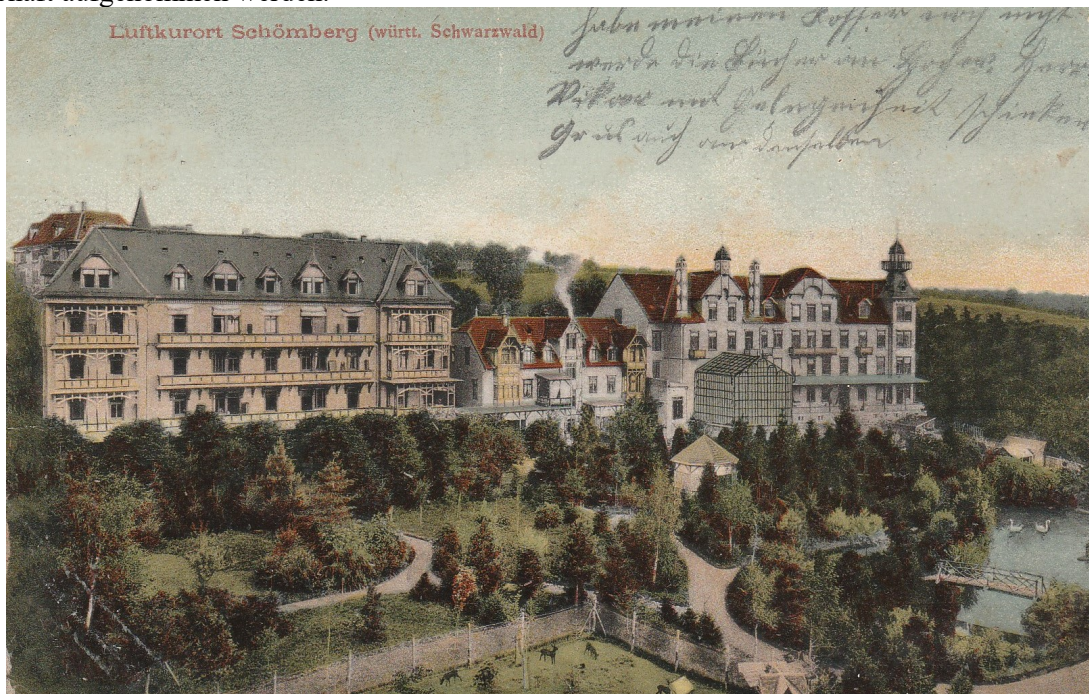 schaft aufgenommen werden.
Luftkurort Schömberg (württ. Schwarzwald)
habe meinen Koffer noch nicht
werde die Bücher an Herr
Vikar mit Gelegenheit schicken
Gruß auch an denselben